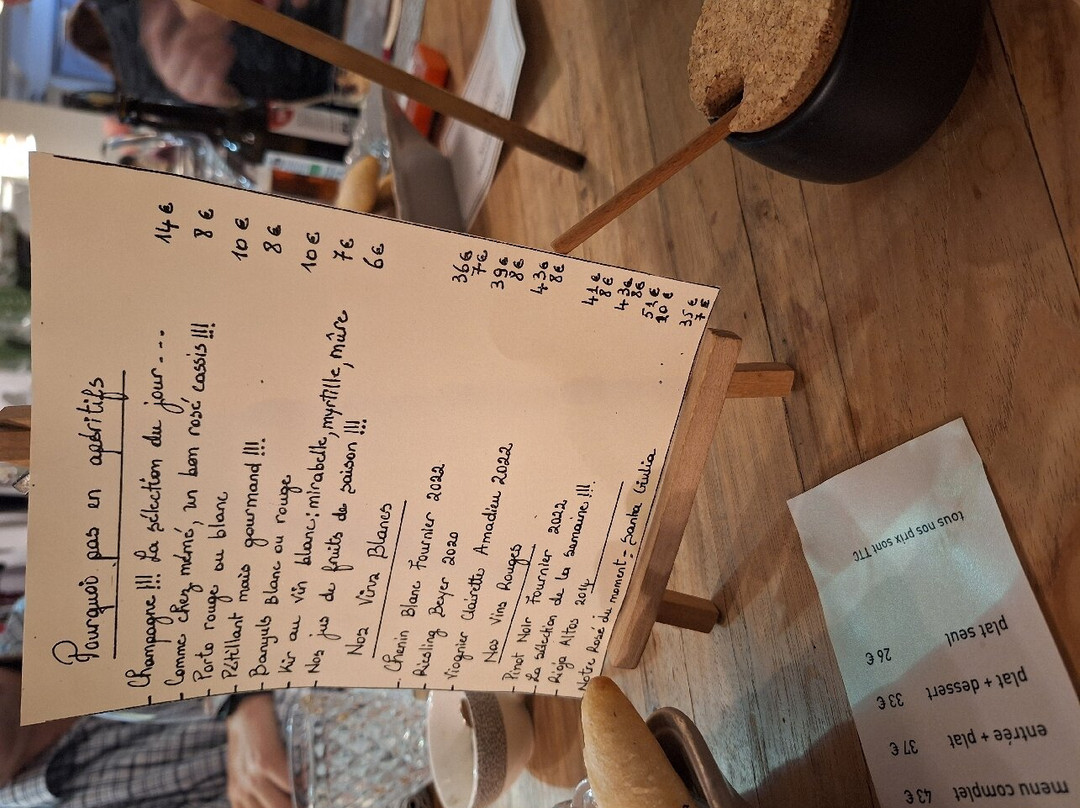 Pourquoi pas en apéritifs
- Champagne !!! La sélection du jour... 14 €
- Comme chez mémé, un bon rosé cassis !!! 8 €
- Porto rouge ou blanc 10 €
- Pétillant mais gourmand !!! 8 €
- Banyuls blanc ou rouge 10 €
- Kir au vin blanc : mirabelle, myrtille, mûre 7 €
- Nos jus de fruits de saison !!! 6 €
Nos Vins Blancs
- Chenin Blanc Fournier 2022 36 € 7 €
- Riesling Beyer 2020 39 € 8 €
- Viognier Clairette Amadieu 2022 43 € 8 €
Nos Vins Rouges
- Pinot Noir Fournier 2022 41 € 8 €
- La sélection de la semaine !!! 43 € 8 €
- Rioja Altos 2014 51 € 10 €
Notre Rosé du moment : Santa Giulia 35 € 7 €
menu complet 43 €
entrée + plat 37 €
plat + dessert 33 €
plat seul 26 €
tous nos prix sont TTC